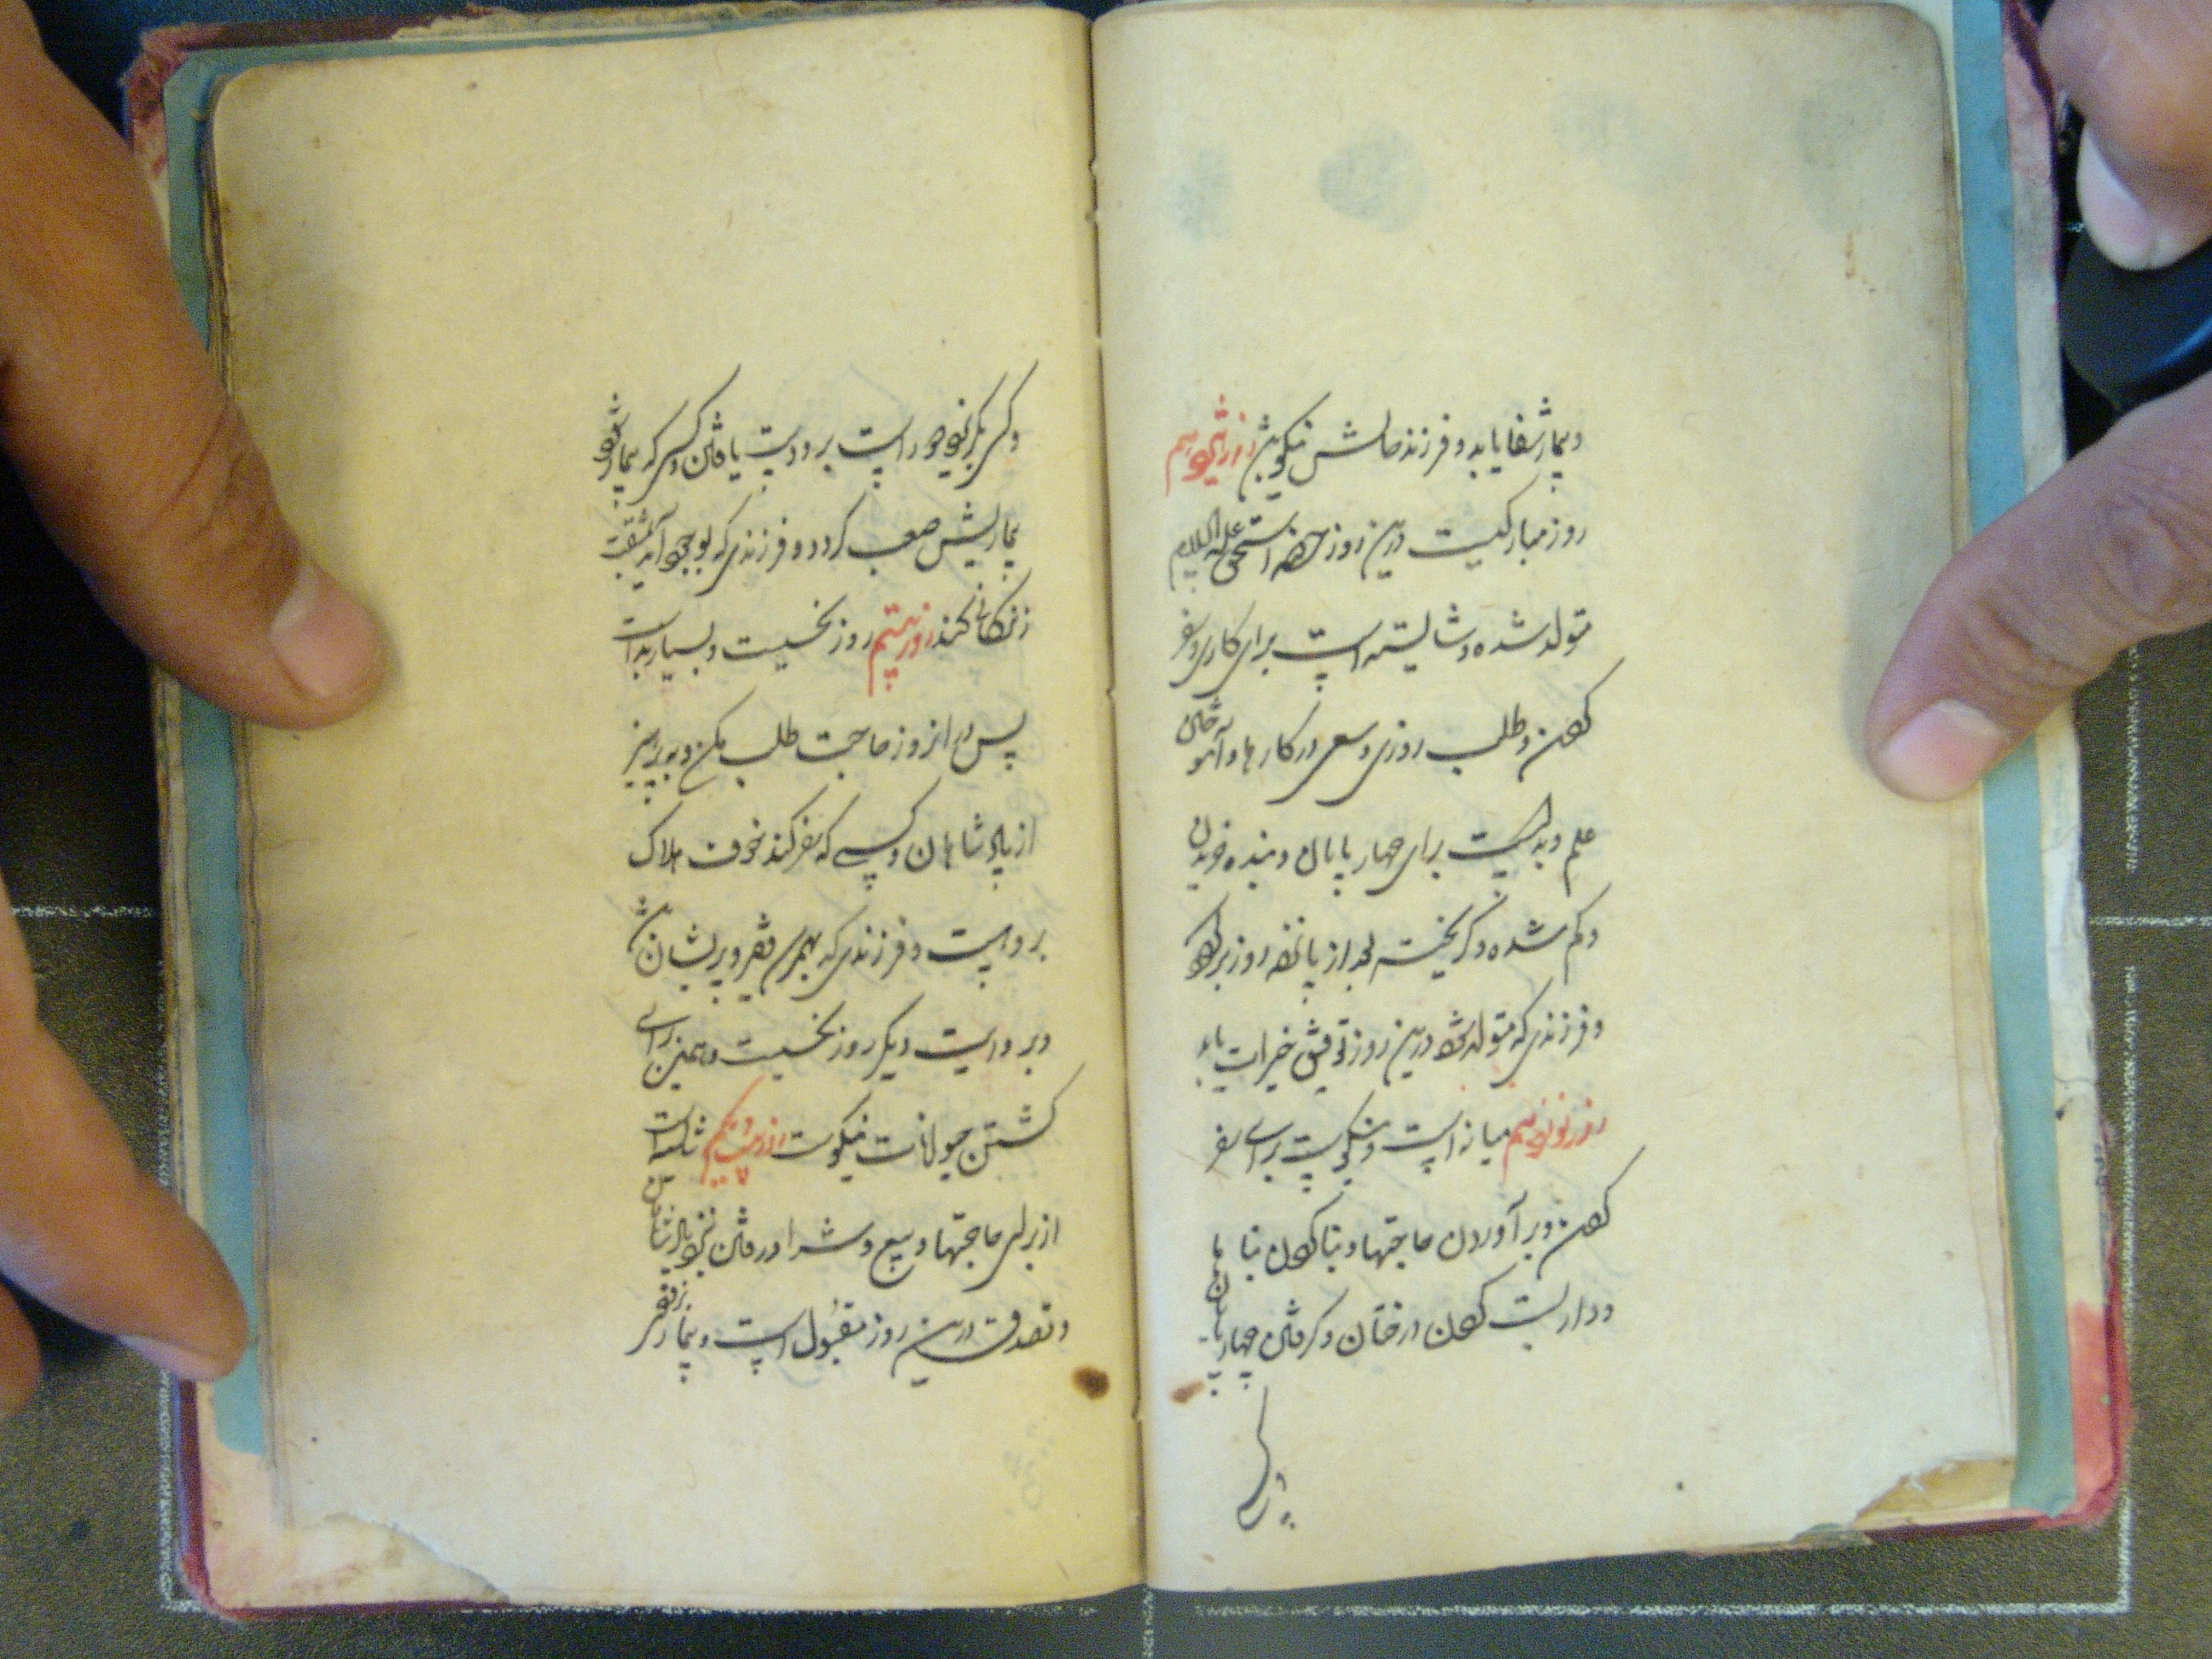 و بیمار شفا یابد و فرزند حالش نیکو باشد روز
روز مبارکیست درین روز حضرة اسحق علیه السلام
متولد شده و شایسته است برای کارى و سفر
کردن و طلب روزی و سعی در کارها و آموختن
علم و بد نیست برای چهارپایان و بنده خریدن
و گم شده و گریخته بعد از پانزده روز برگردد
و فرزندى که متولد شود درین روز توفیق خیرات یابد
روز نوزدهم میانه است و نیکوست برای سفر
کردن و برآوردن حاجتها و بنا کردن بناها
و دار بست کردن درختان و گرفتن چهارپایان
و کسی بگریزد دور است بدست یافتن و کسی که بیمار شود
بیماریش صعب گردد و فرزندى که بوجود آید بمشقت
زندکانی کند روز بیستم روز نحسیست و بسیار بد است
پس در انروز حاجت طلب مکن و به پرهیز
از پادشاهان و کسی که سفر کند خوف هلاک
بر اوست و فرزندى که بهمرسد فقیر و پریشان باشد
و بروایت دیگر روز نحسیست و همین برای
کشتن حیوانات نیکوست روز شایسته است
از برای حاجتها و بیع و شرا و رفتن نزد پادشاهان
و تصدق درین روز مقبول است و بیمار